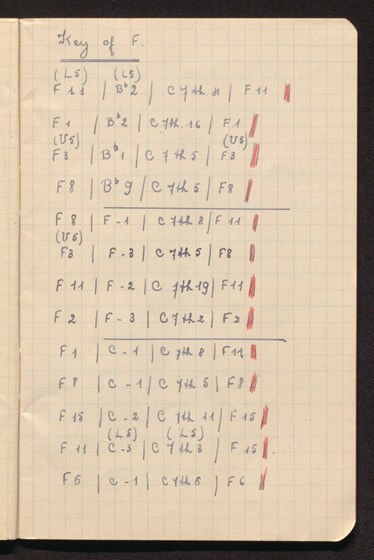 Key of F.
(L5) (L5)
F 11 | Bb 2 | C 7th. 11 | F 11
F 1 | Bb 2 | C 7th. 16 | F 1
(U5) (U5)
F 3 | Bb 1 | C 7th 5 | F 3
F 8 | Bb 9 | C 7th 5 | F 8
F 8 | F - 1 | C 7th 8 | F 11
(U5)
F 3 | F - 3 | C 7th 5 | F 8
F 11 | F - 2 | C 7th 19 | F 11
F 2 | F - 3 | C 7th 2 | F 2
F 1 | C - 1 | C 7th 8 | F 11
F 8 | C - 1 | C 7th 5 | F 8
F 15 | C - 2 | C 7th 11 | F 15
(L5) (L5)
F 11 | C - 3 | C 7th 3 | F 15
F 6 | C - 1 | C 7th 6 | F 6